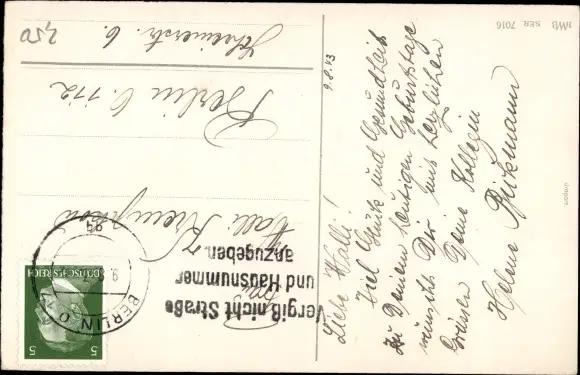 9.8.43
Liebe Walli!
Viel Glück und Gesundheit
zu Deinem heutigen Geburtstage
wünscht Dir mit herzlichen
Grüssen Deine Kollegin
Helene
HWB SER 7016
DEUTSCHES REICH
5 5
BERLIN O
Vergiß nicht Straße
und Hausnummer
anzugeben.
Frau
Berlin O. 112
6.
2,50